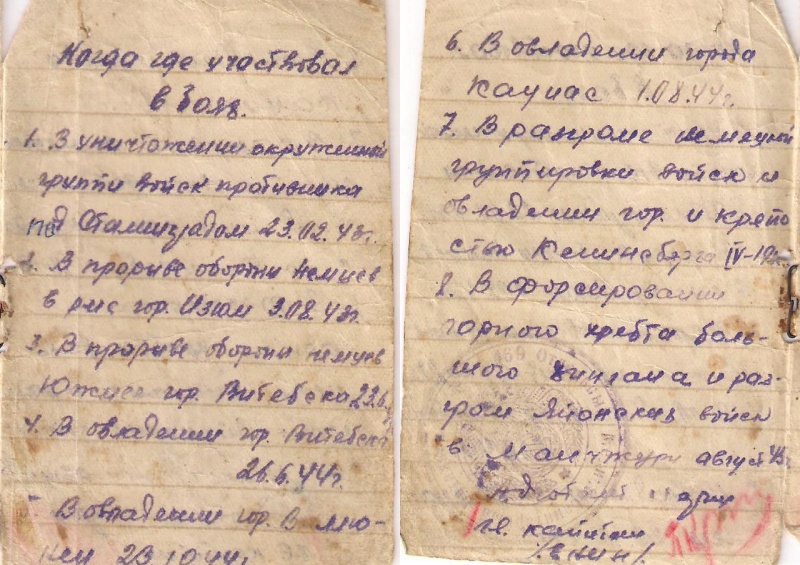 Когда где участвовал
в боях.
1. В уничтожении окруженной
группи войск противника
под Сталинградом 23.02.43г.
2. В прорыве обороны немцев
в рие гор. Изюм 3.08.43г.
3. В прорыве обороны немцев
Южнее гор. Витебска 23.6.
4. В овладении гор. Витебска
26.6.44г.
5. В овладении гор.
23 10 44г.
6. В овладении города
Каунас 1.08.44г.
7. В разгроме немецкой
группировки войск и
овладении гор. и крепо
стью Кенинсберга IV-
8. В форсировании
горного хребта боль-
шого хингана и раз-
гром Японских войск
в Манчжури август 45
гв. капитан